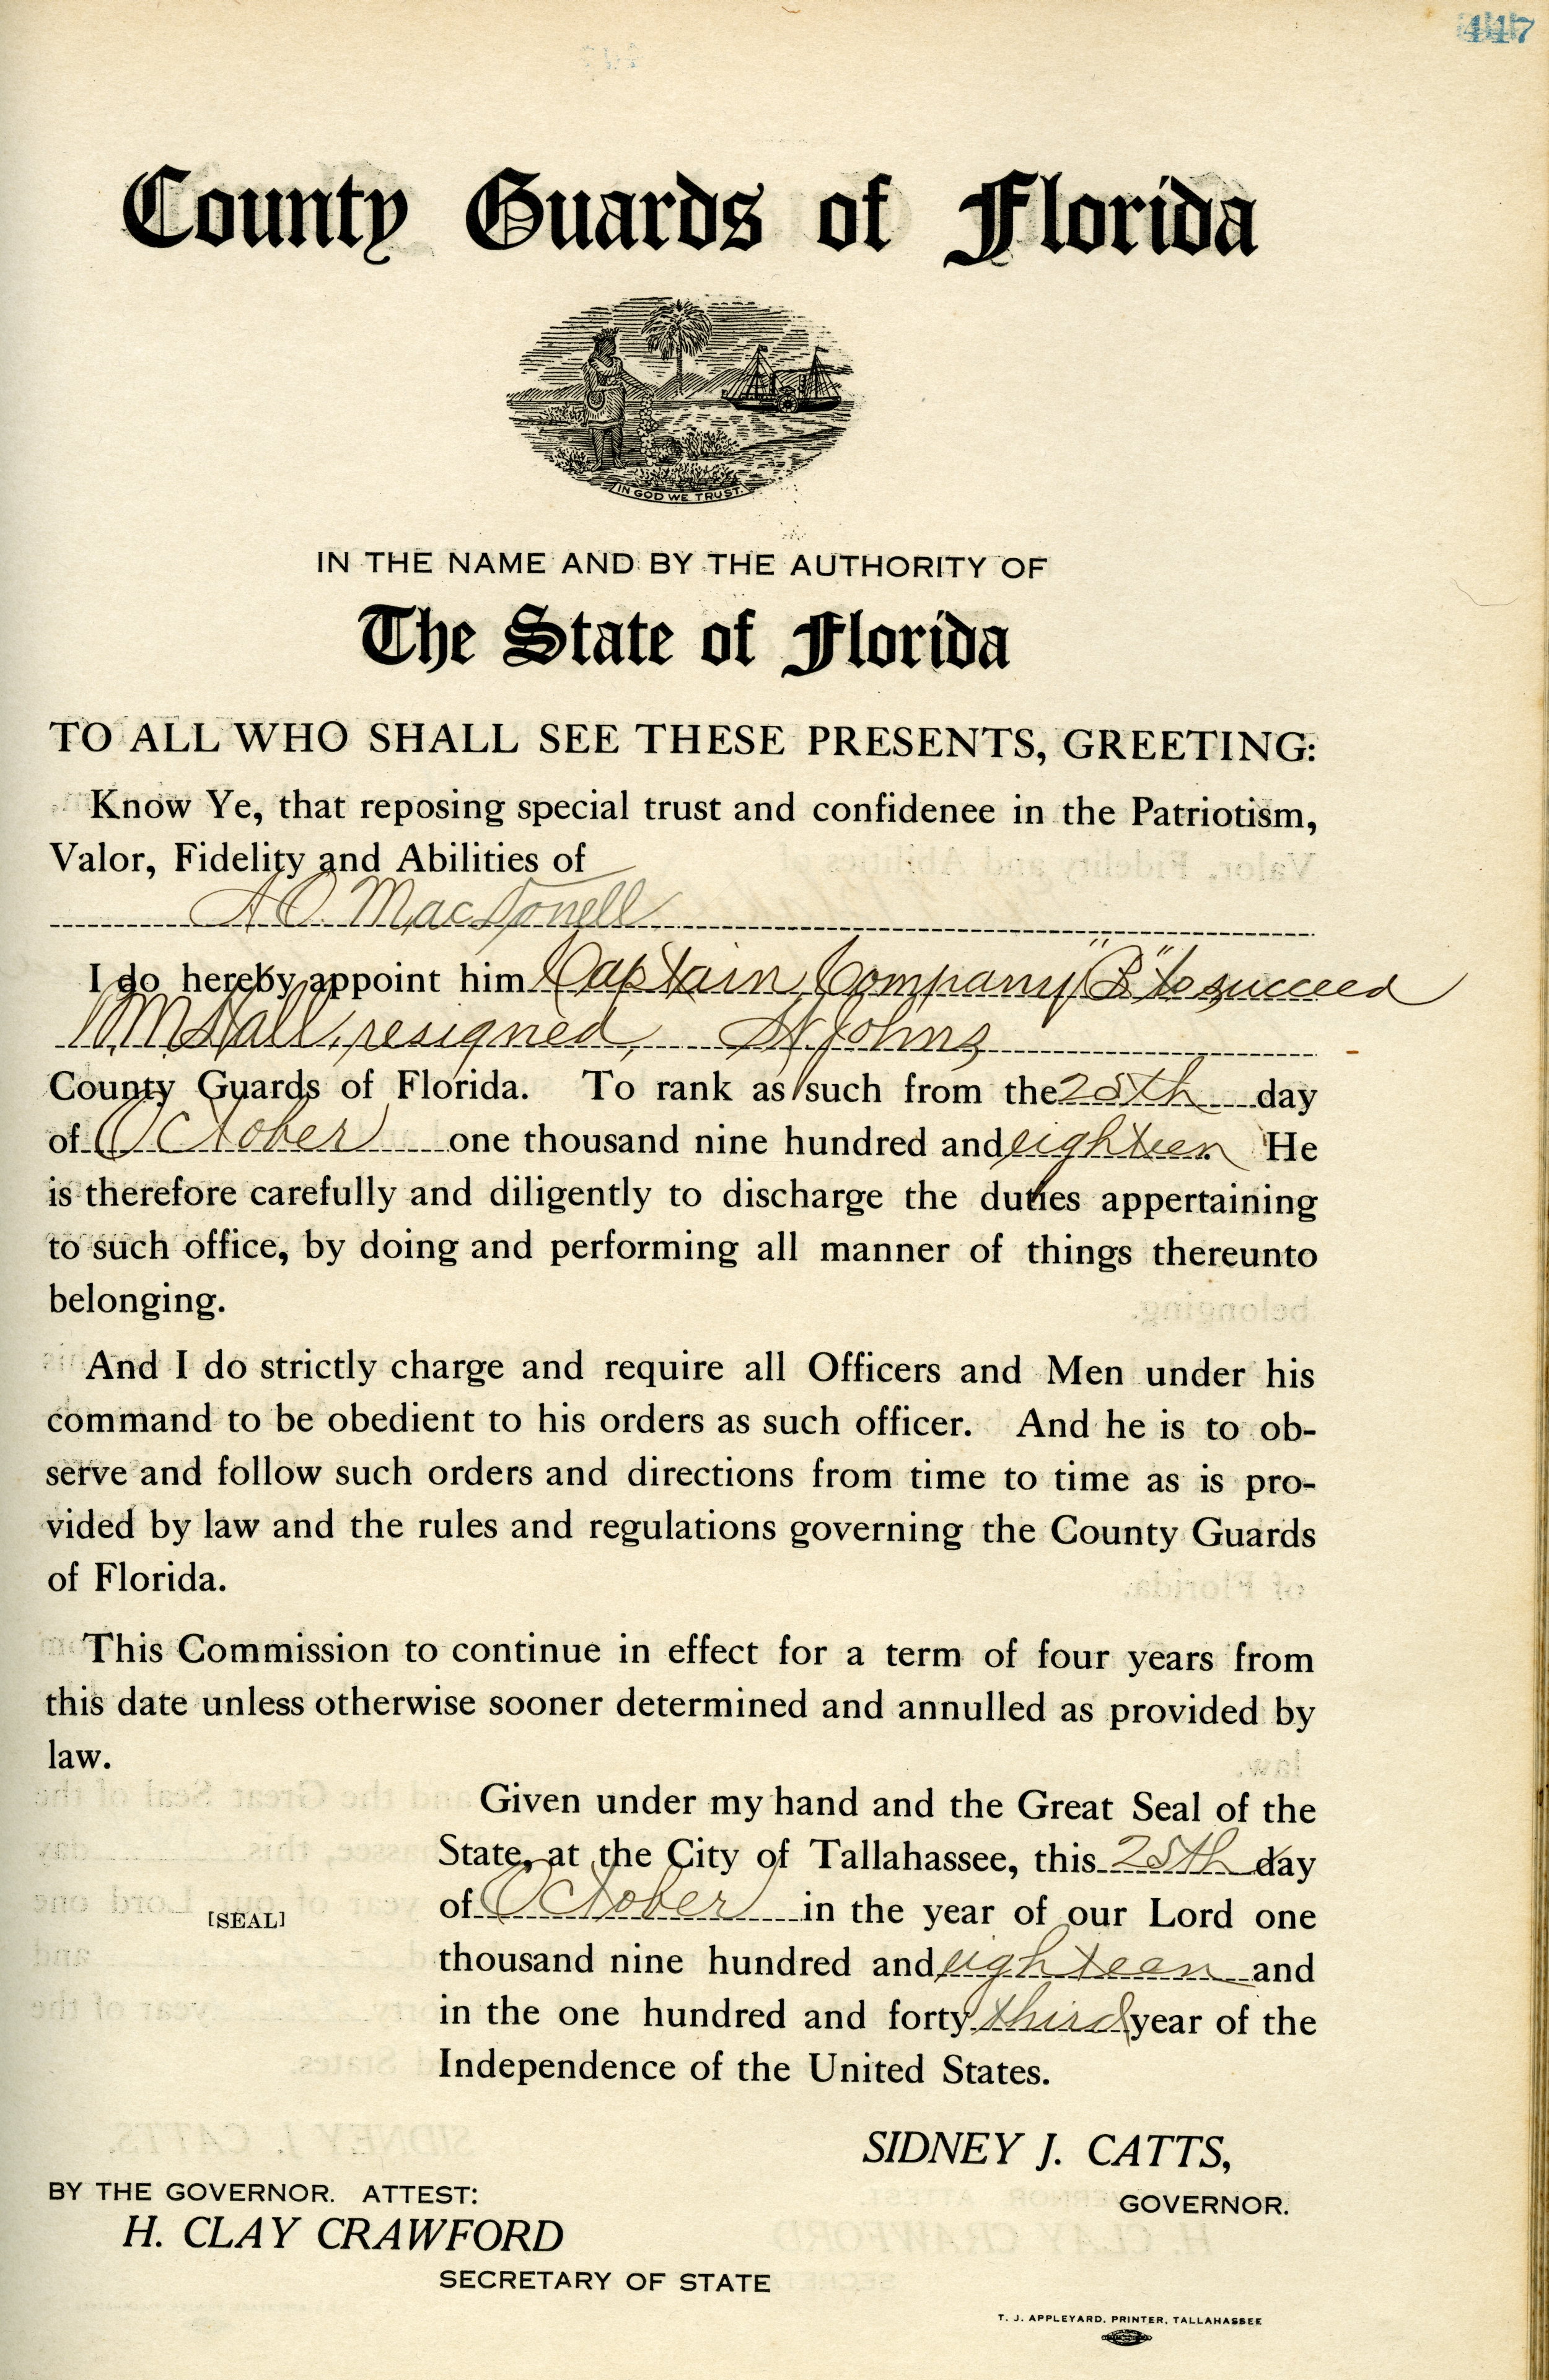 447
County Guards of Florida
IN GOD WE TRUST.
IN THE NAME AND BY THE AUTHORITY OF
The State of Florida
TO ALL WHO SHALL SEE THESE PRESENTS, GREETING:
Know Ye, that reposing special trust and confidenee in the Patriotism,
Valor, Fidelity and Abilities of
A.O. MacDonell
I do hereby appoint him Captain, Company "B" to succeed
W.M. Hall, resigned, St Johns
County Guards of Florida. To rank as such from the 25th day
of October one thousand nine hundred and eighteen He
is therefore carefully and diligently to discharge the duties appertaining
to such office, by doing and performing all manner of things thereunto
belonging.
And I do strictly charge and require all Officers and Men under his
command to be obedient to his orders as such officer. And he is to ob-
serve and follow such orders and directions from time to time as is pro-
vided by law and the rules and regulations governing the County Guards
of Florida.
This Commission to continue in effect for a term of four years from
this date unless otherwise sooner determined and annulled as provided by
law.
Given under my hand and the Great Seal of the
State, at the City of Tallahassee, this 25th day
of October in the year of our Lord one
[SEAL]
thousand nine hundred and eighteen and
in the one hundred and forty third year of the
Independence of the United States.
SIDNEY J. CATTS,
GOVERNOR.
BY THE GOVERNOR. ATTEST:
H. CLAY CRAWFORD
SECRETARY OF STATE
T. J. APPLEYARD, PRINTER, TALLAHASSEE